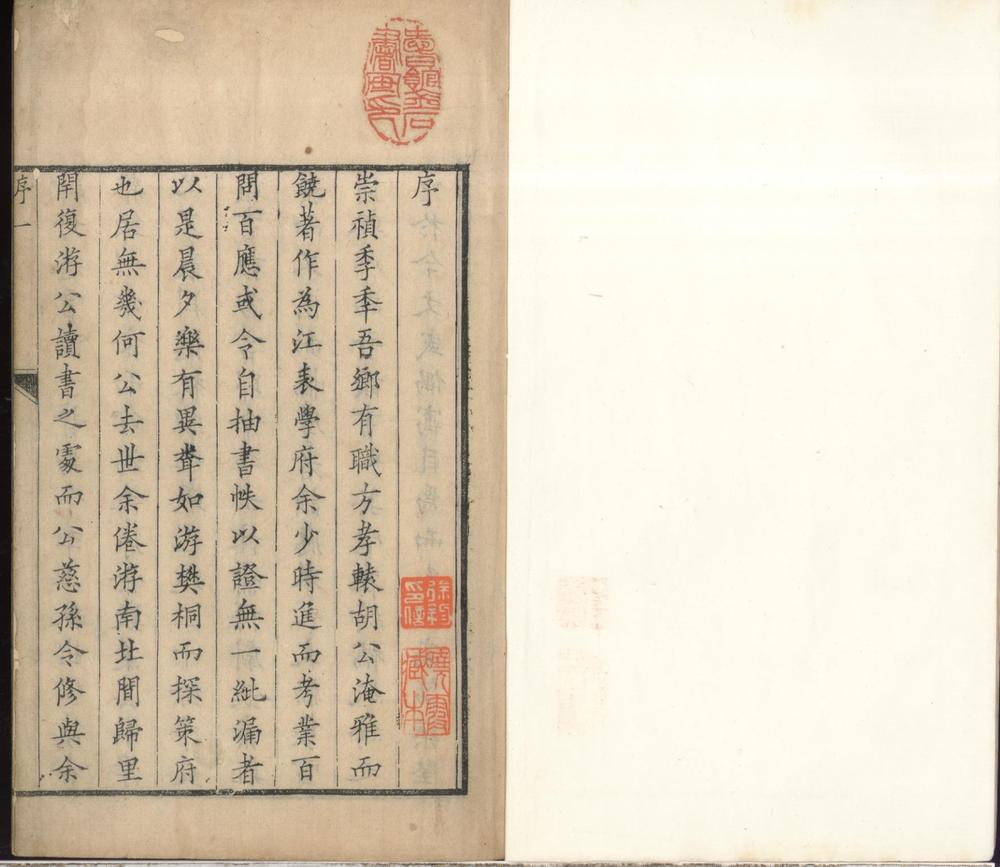 序
崇禎季年吾鄉有職方孝轅胡公淹雅而
饒著作為江表學府余少時進而考業百
問百應或令自抽書帙以證無一紕漏者
以是晨夕樂有異聞如游樊桐而探策府
也居無幾何公去世余倦游南北間歸里
閈復游公讀書之處而公慈孫令修與余
序 一